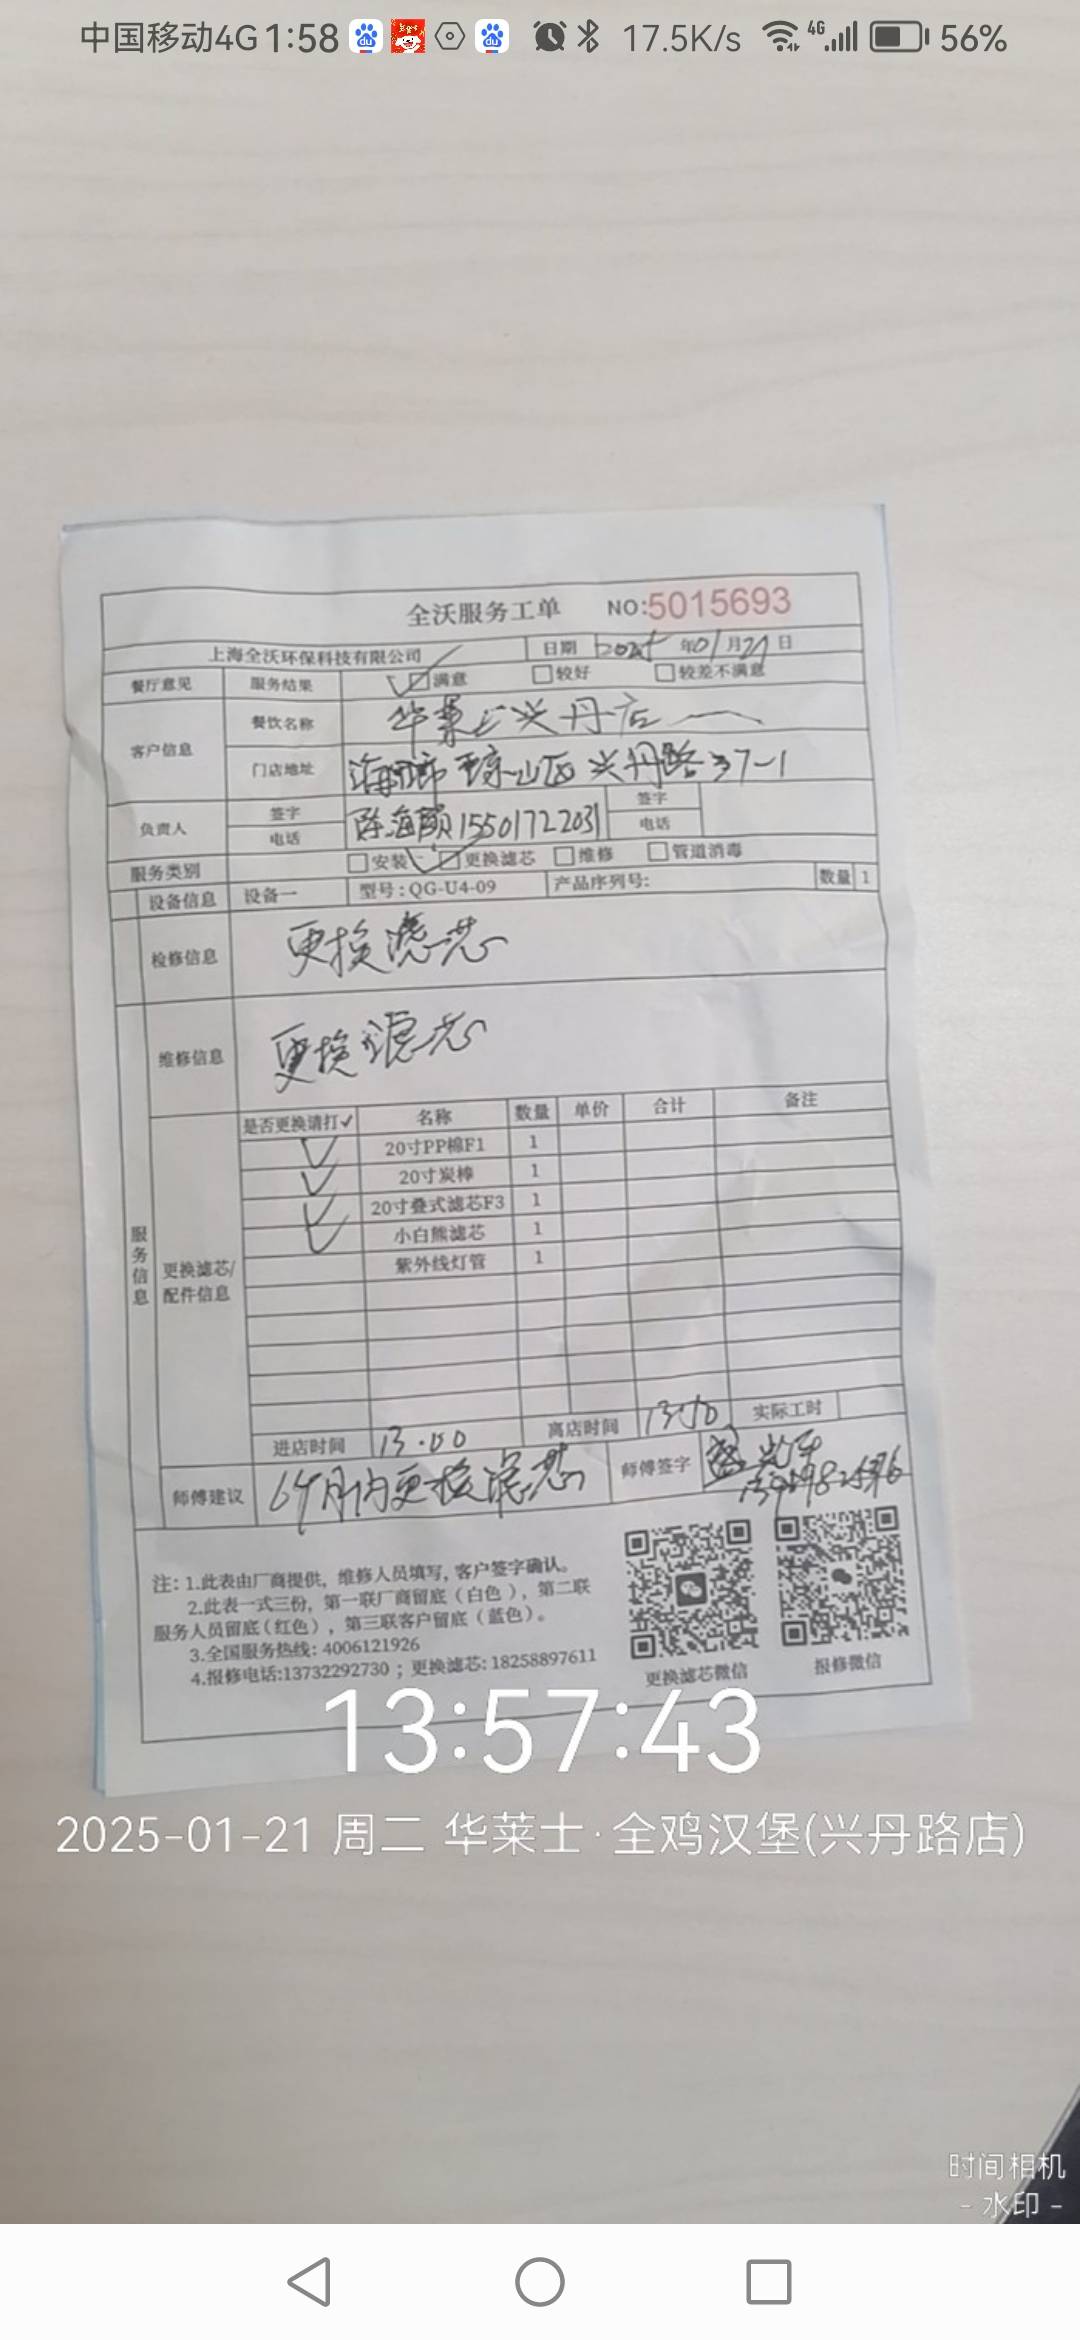 中国移动4G 1:58 17.5K/s 4G 56%
全沃服务工单 NO:5015693
上海全沃环保科技有限公司 日期 年01月21日
餐厅意见 服务结果 满意 较好 较差不满意
客户信息 餐饮名称 华莱士兴丹店
门店地址 海口市琼山区兴丹路37-1
负责人 签字 电话 陈海 15501722031 签字 电话
服务类别 安装 更换滤芯 维修 管道消毒
设备信息 设备一 型号:QG-U4-09 产品序列号: 数量 1
检修信息 更换滤芯
维修信息 更换滤芯
服务信息 更换滤芯/配件信息
是否更换请打✓ 名称 数量 单价 合计 备注
✓ 20寸PP棉F1 1
✓ 20寸炭棒 1
✓ 20寸叠式滤芯F3 1
✓ 小白熊滤芯 1
紫外线灯管 1
进店时间 13:00 离店时间 13:50 实际工时
师傅建议 6个月内更换滤芯 师傅签字
注: 1.此表由厂商提供, 维修人员填写, 客户签字确认。
2.此表一式三份, 第一联厂商留底(白色), 第二联
服务人员留底(红色), 第三联客户留底(蓝色)。
3.全国服务热线: 4006121926
4.报修电话:13732292730 ; 更换滤芯: 18258897611
更换滤芯微信 报修微信
13:57:43
2025-01-21 周二 华莱士·全鸡汉堡(兴丹路店)
时间相机
- 水印 -